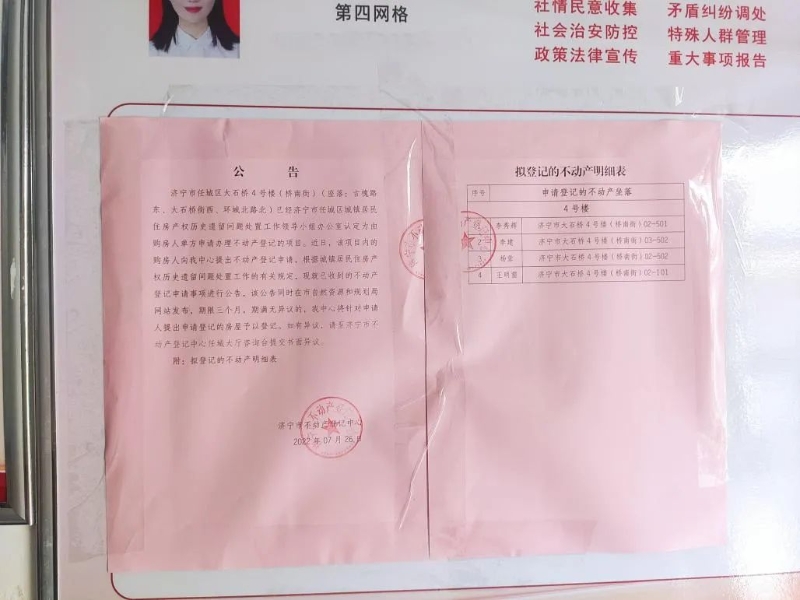 第四网格
社情民意收集 矛盾纠纷调处
社会治安防控 特殊人群管理
政策法律宣传 重大事项报告
公 告
济宁市任城区大石桥4号楼（桥南街）（坐落：古槐路
东、大石桥街西、环城北路北）已经济宁市任城区城镇居民
住房产权历史遗留问题处置工作领导小组办公室认定为由
购房人单方申请办理不动产登记的项目。近日，该项目内的
购房人向我中心提出不动产登记申请。根据城镇居民住房产
权历史遗留问题处置工作的有关规定，现就已收到的不动产
登记申请事项进行公告。该公告同时在市自然资源和规划局
网站发布，期限三个月，期满无异议的，我中心将针对申请
人提出申请登记的房屋予以登记。如有异议，请至济宁市不
动产登记中心任城大厅咨询台提交书面异议。
附：拟登记的不动产明细表
济宁市不动产登记中心
2022年07月26日
拟登记的不动产明细表
序号 申请登记的不动产坐落
4号楼
李秀群 济宁市大石桥4号楼（桥南街）02-501
2 李建 济宁市大石桥4号楼（桥南街）03-502
3 济宁市大石桥4号楼（桥南街）02-502
4 王明 济宁市大石桥4号楼（桥南街）02-101